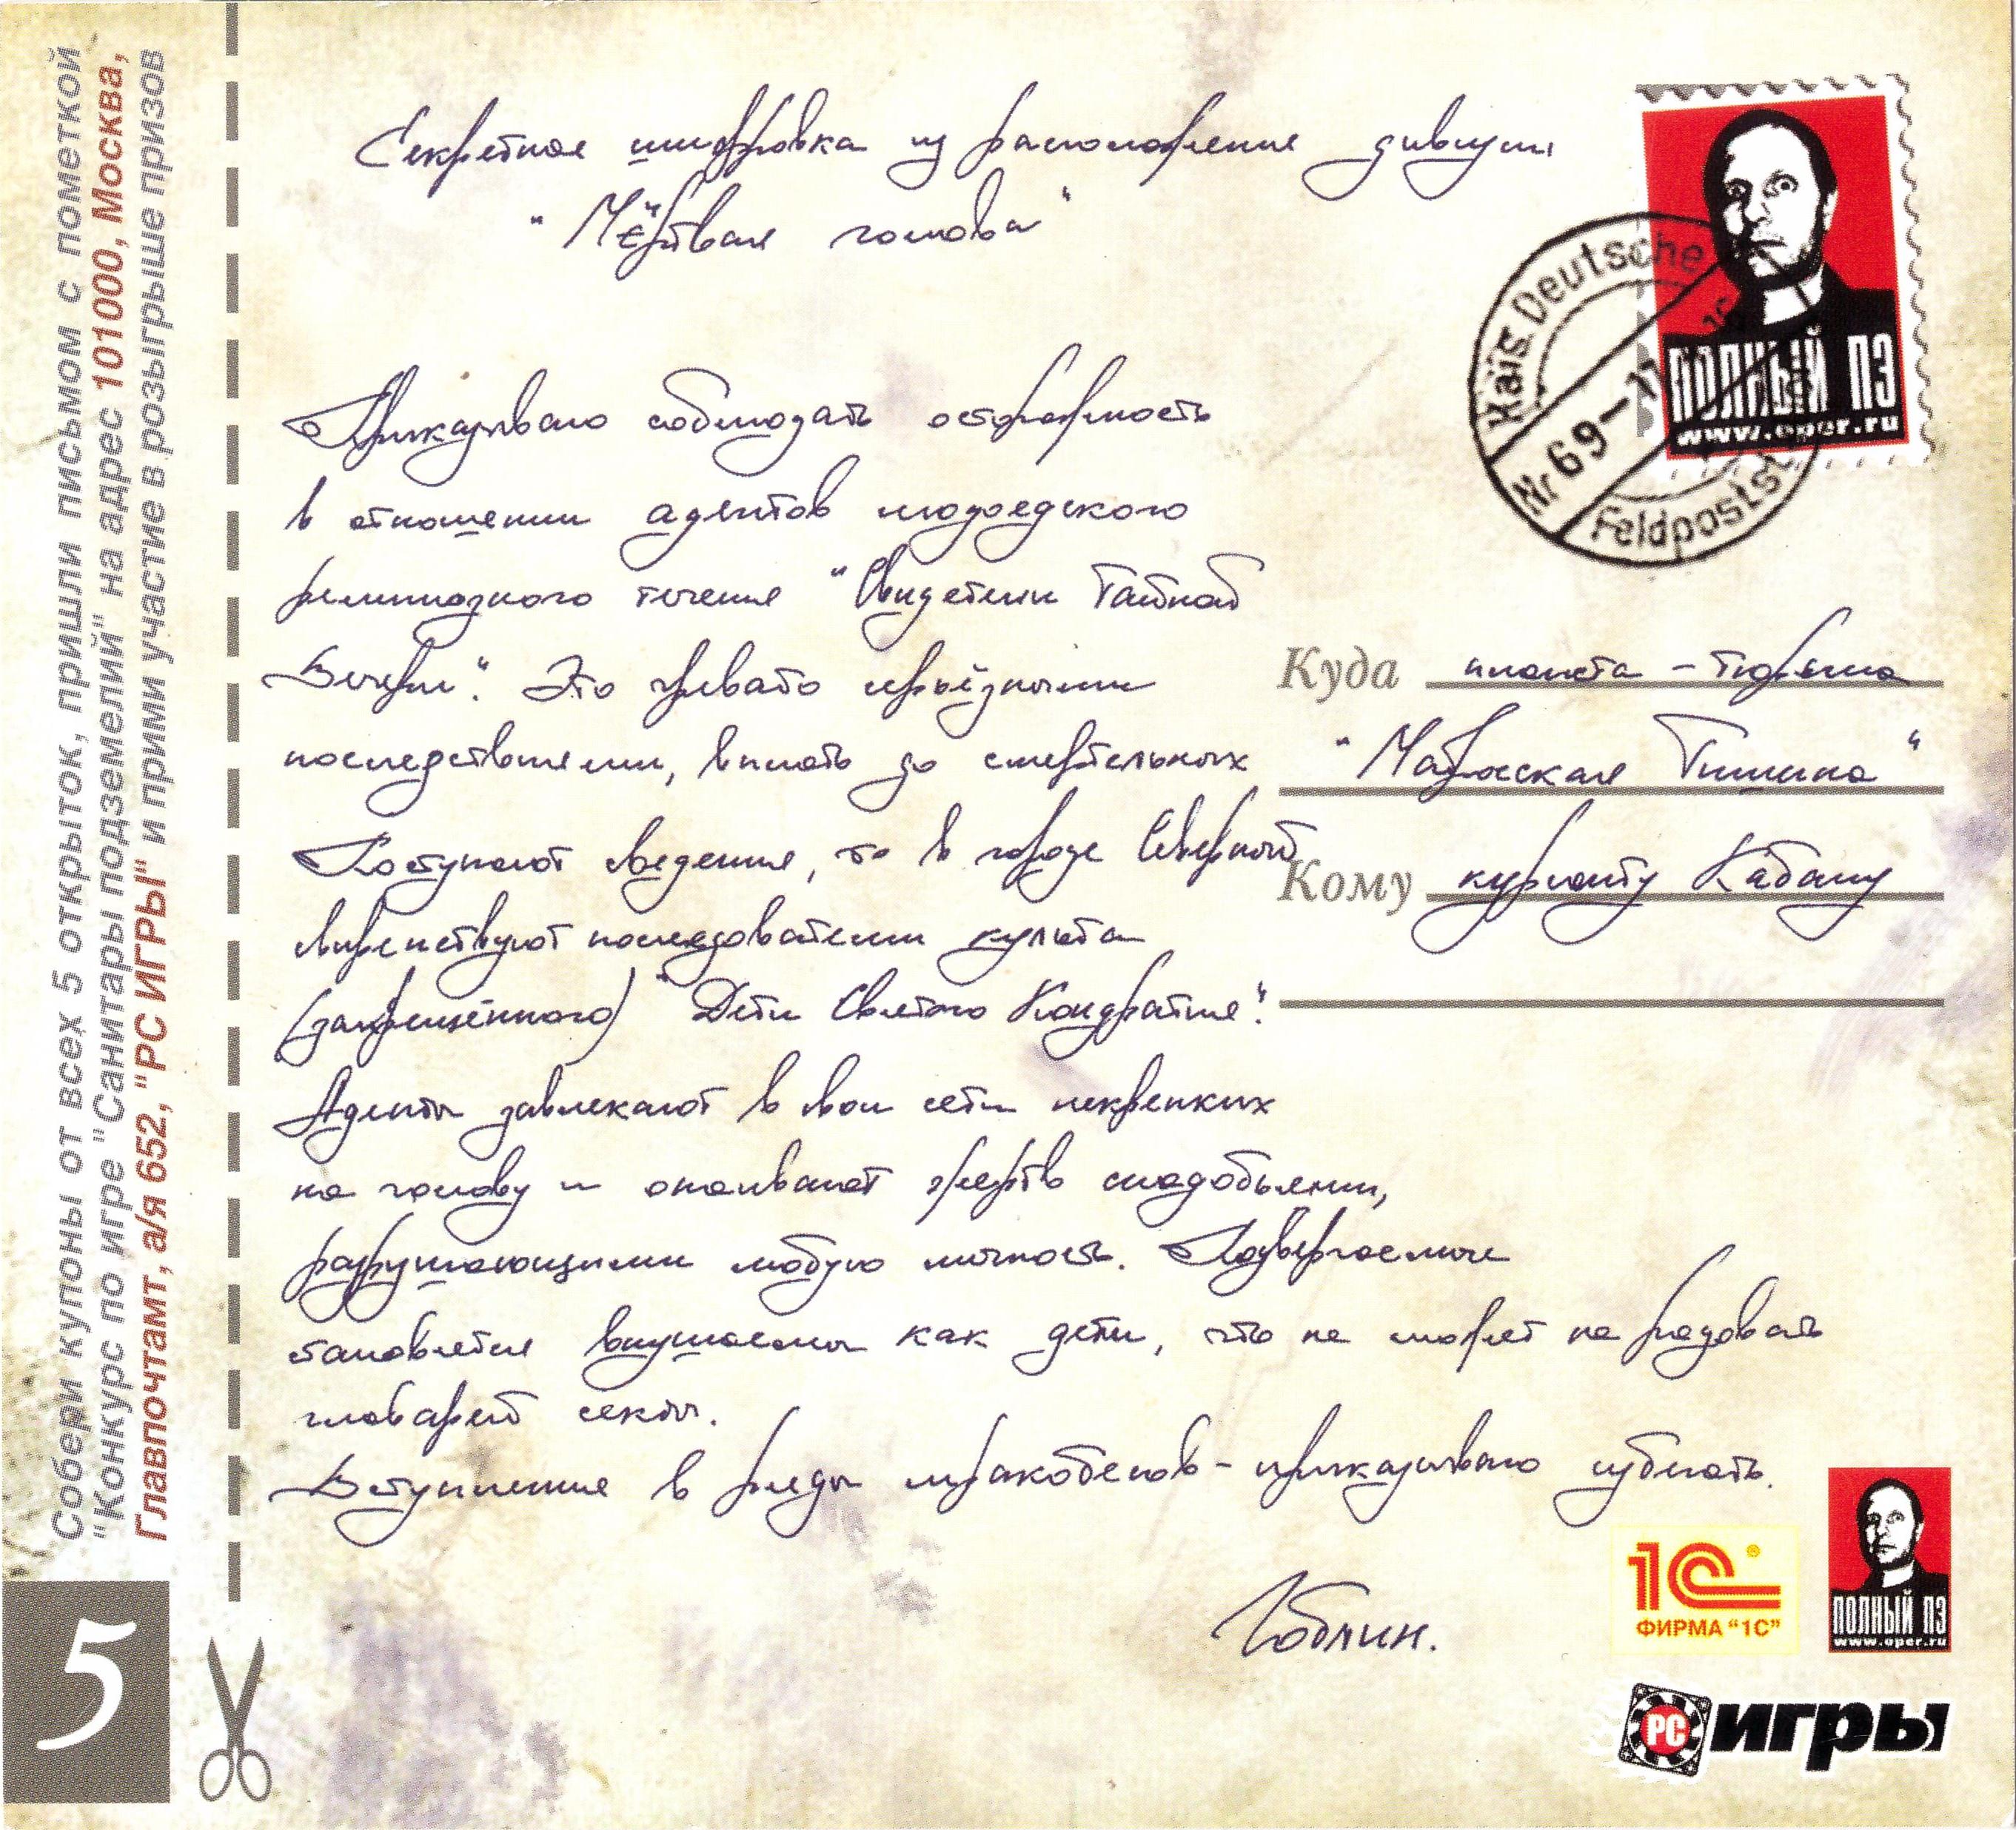 Собери купоны от всех 5 открыток, пришли письмом с пометкой
"Конкурс по игре "Санитары подземелий" на адрес 101000, Москва,
Главпочтамт, а/я 652, "PC ИГРЫ" и прими участие в розыгрыше призов
5
Секретная шифровка из расположения дивизии
"Мёртвая голова"
Приказываю соблюдать осторожность
в отношении агентов людоедского
религиозного течения "Свидетели Тайной
Вечери". Это чревато серьёзными
последствиями, вплоть до смертельных
Поступают сведения, что в городе Северной
свирепствуют последователи культа
(запрещённого) "Дети Святого Кондратия".
Агенты завлекают в свои сети некрепких
на голову и опаивают жертв снадобьями,
разрушающими любую личность. Подвергаемые
становятся внушаемы как дети, что не может не радовать
главарей секты.
Вступление в ряды мракобесов - приказываю избегать.
Гоблин.
ПОЛНЫЙ ПЭ
www.oper.ru
Kais. Deutsche
Nr 69-11
Feldpostst
Куда планета - тюрьма
"Матросская Тишина"
Кому курсанту Кабану
1С®
ФИРМА "1С"
ПОЛНЫЙ ПЭ
www.oper.ru
PC ИГРЫ